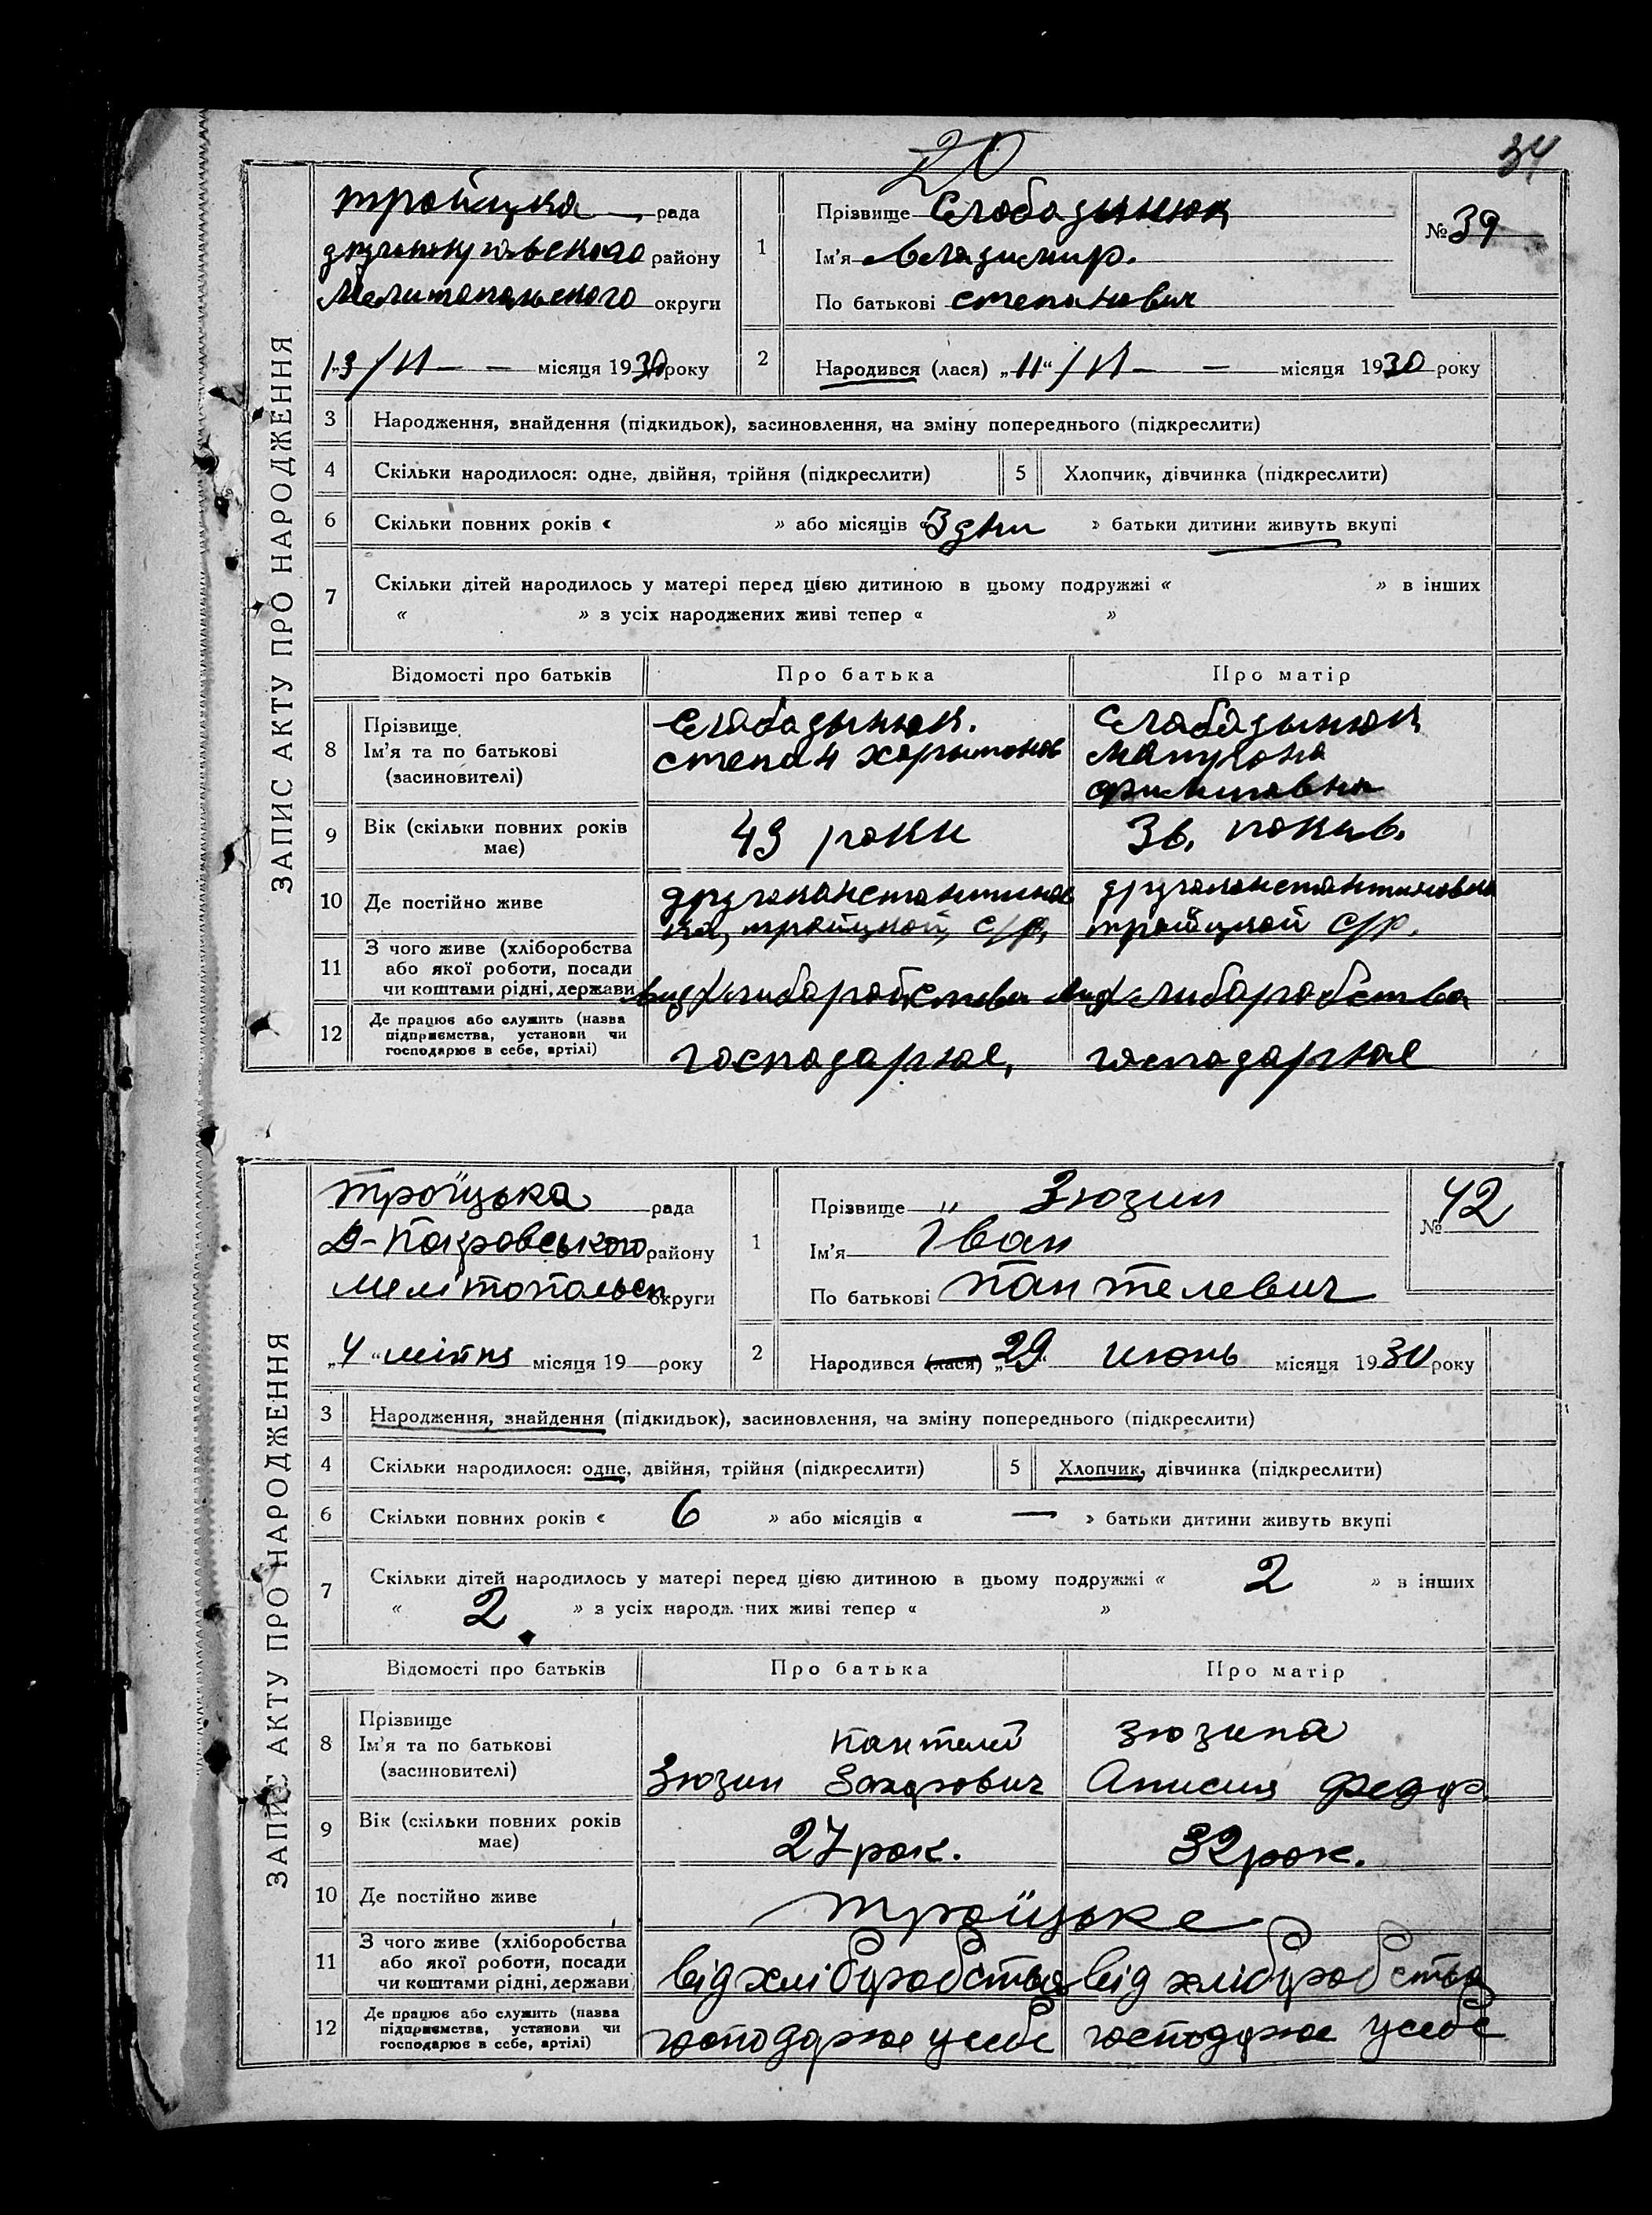 20
34
ЗАПИС АКТУ ПРО НАРОДЖЕННЯ
тройцка рада
району
Мелитопольского округи
"13/VI — — місяця 1930 року
1
Прізвище Слободынюк
Ім'я Владимир.
По батькові степанович
№ 39
2
Народився (лася) „11“/VI — — місяця 1930 року
3 Народження, знайдення (підкидьок), засиновлення, на зміну попереднього (підкреслити)
4 Скільки народилося: одне, двійня, трійня (підкреслити) 5 Хлопчик, дівчинка (підкреслити)
6 Скільки повних років « » або місяців «3 дни » батьки дитини живуть вкупі
7 Скільки дітей народилось у матері перед цією дитиною в цьому подружжі « » в інших
« » з усіх народжених живі тепер « »
Відомості про батьків Про батька Про матір
8 Прізвище
Ім'я та по батькові
(засиновителі)
Слабадынюк.
степан Харытонов
Слабадынюк
9 Вік (скільки повних років
має)
43 роки
36.
10 Де постійно живе
другоконстантинов
ка, тройцкой, с/р,
другоконстантиновка
тройцкой с/р.
11 З чого живе (хліборобства
або якої роботи, посади
чи коштами рідні, держави
вид хлиборобства
вид хлиборобства
12 Де працює або служить (назва
підприємства, установи чи
господарює в себе, артілі)
господарюе,
господарюе
ЗАПИС АКТУ ПРО НАРОДЖЕННЯ
Троїцька рада
Д-Покровського району
Мелітопольск округи
„4“ місяця 19 — року
1
Прізвище Зюзин
Ім'я Іван
По батькові Пантелевич
№ 42
2
Народився (лася) „29“ июнь місяця 1930 року
3 Народження, знайдення (підкидьок), засиновлення, на зміну попереднього (підкреслити)
4 Скільки народилося: одне, двійня, трійня (підкреслити) 5 Хлопчик, дівчинка (підкреслити)
6 Скільки повних років « 6 » або місяців « — » батьки дитини живуть вкупі
7 Скільки дітей народилось у матері перед цією дитиною в цьому подружжі « 2 » в інших
« 2 » з усіх народж них живі тепер « »
Відомості про батьків Про батька Про матір
8 Прізвище
Ім'я та по батькові
(засиновителі)
Пантелей
Зюзин Захарович
Зюзина
Анисия Федор.
9 Вік (скільки повних років
має)
27 рок.
32 рок.
10 Де постійно живе
Троїцьке
11 З чого живе (хліборобства
або якої роботи, посади
чи коштами рідні, держави
від хліборобства
від хліборобства
12 Де працює або служить (назва
підприємства, установи чи
господарює в себе, артілі)
господарює у себе
господарює у себе